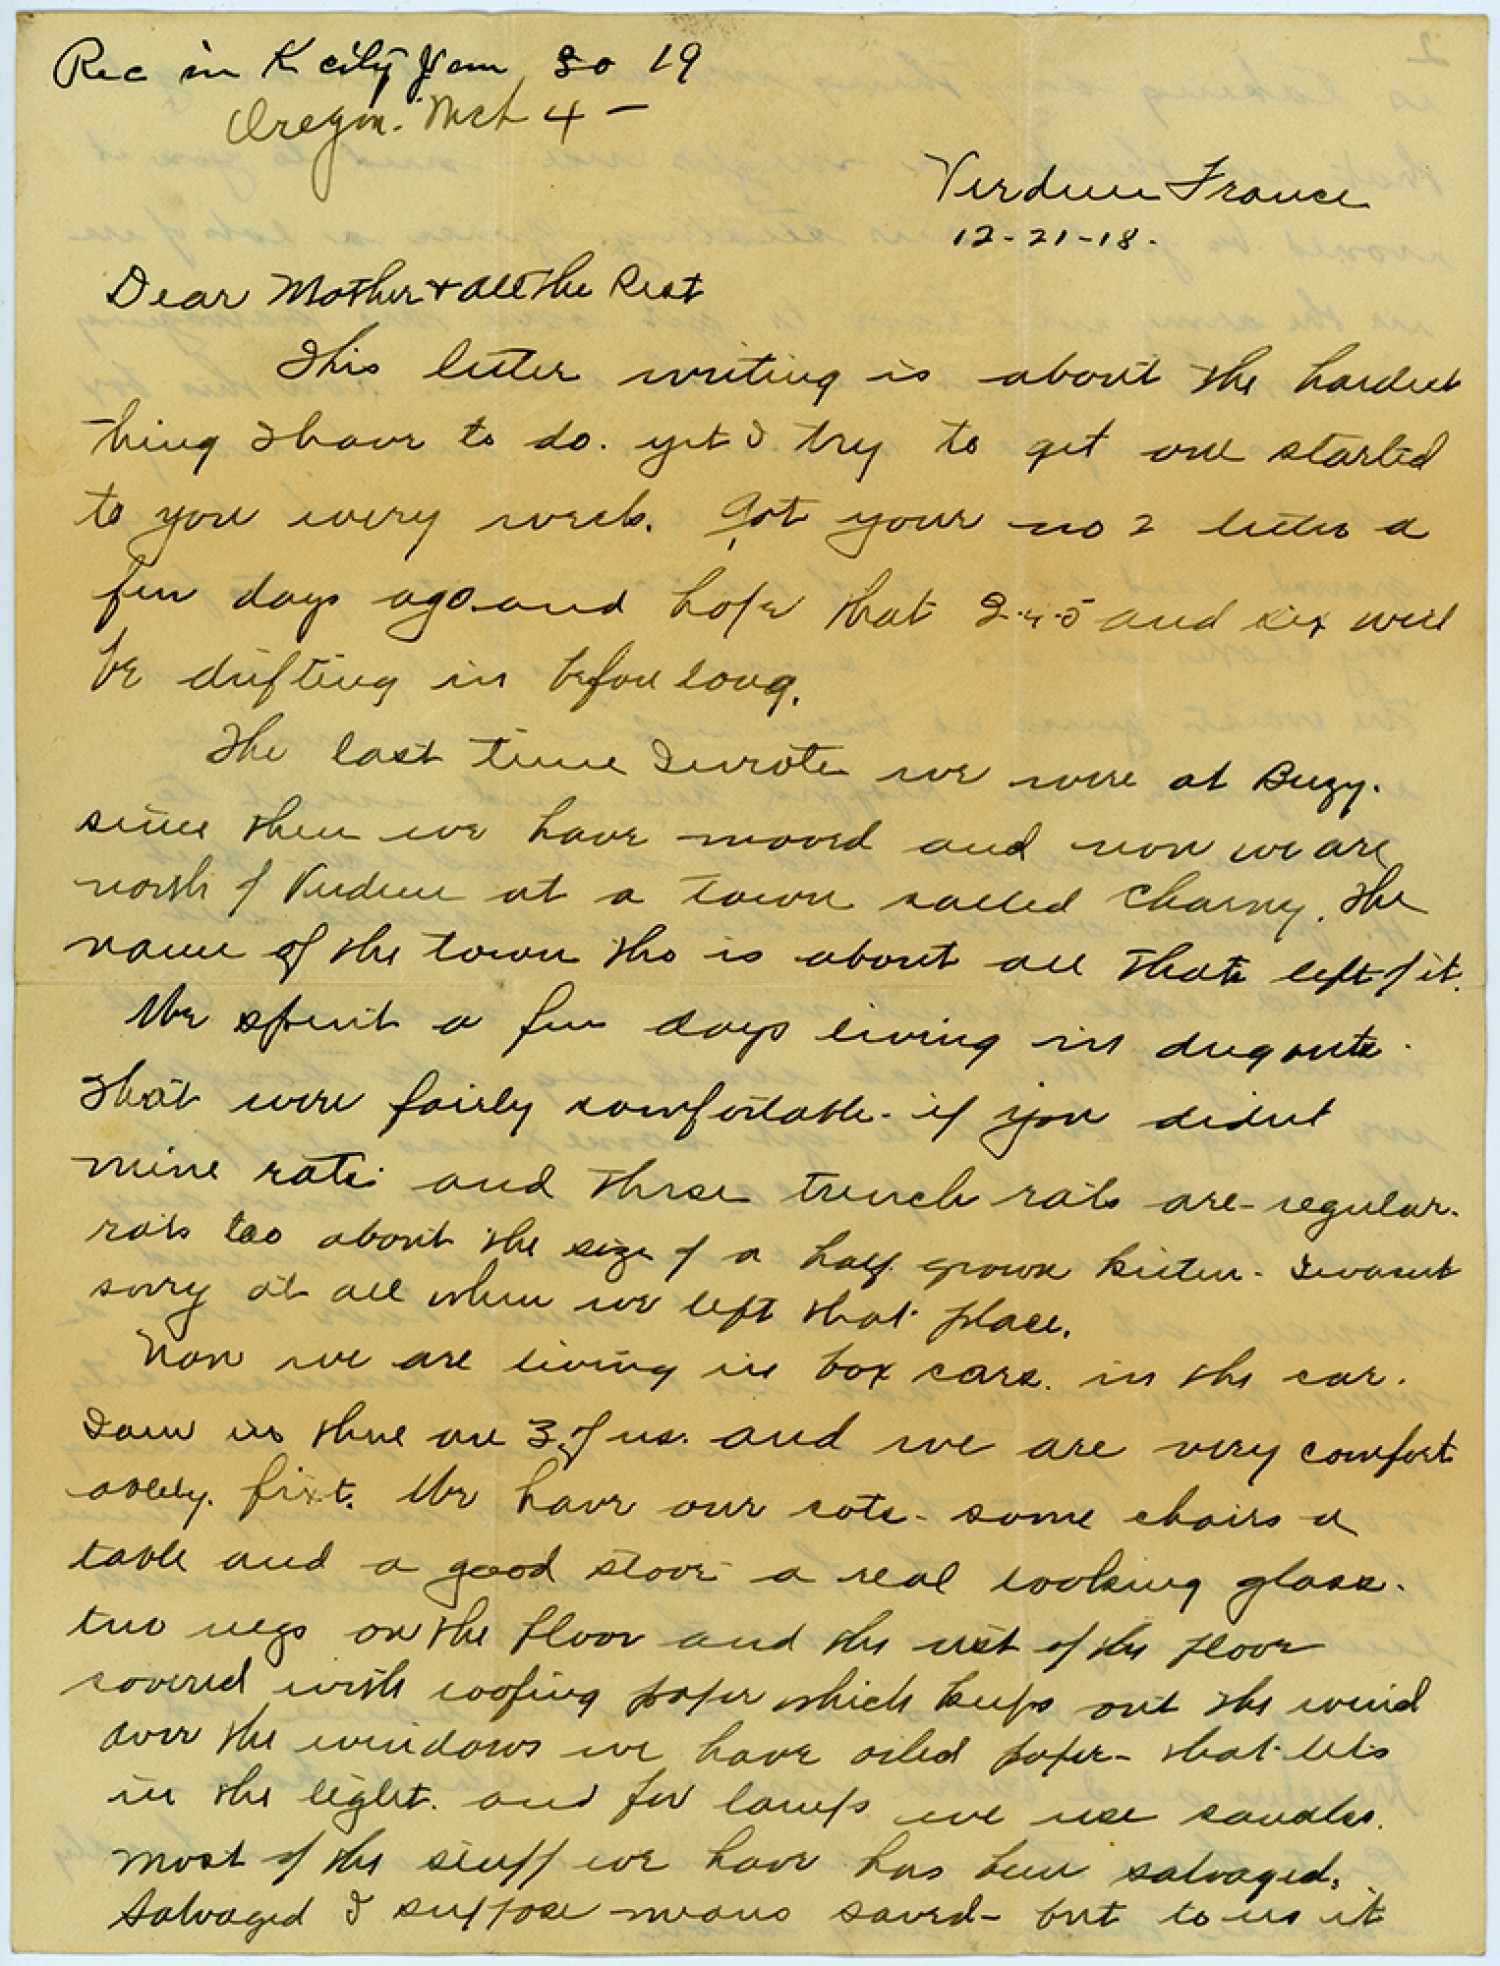 Rec in K city Jan 30 19
Oregon. Mch 4 -
Verdun France
12-21-18.
Dear Mother & all the Rest
This letter writing is about the hardest
thing I have to do. yet I try to get one started
to you every week. Got your no 2 letter a
few days ago and hope that 3-4-5 and six will
be drifting in before long.
The last time I wrote we were at Buzy.
since then we have moved and now we are
north of Verdun at a town called Charny. The
name of the town tho is about all thats left of it.
We spent a few days living in dugouts.
That were fairly comfortable - if you didnt
mine rats. and these trench rats are - regular.
rats too about the size of a half grown kitten - I wasnt
sorry at all when we left that place.
Now we are living in box cars. in the car.
I am in there are 3 of us. and we are very comfort
ably. fixt. We have our cots - some chairs a
table and a good stove a real looking glass.
two rugs on the floor and the rest of the floor
covered with roofing paper which keeps out the wind
over the windows we have oiled paper - that lets
in the light. and for lamps we use candles.
most of the stuff we have has been salvaged.
Salvaged I suppose means saved - but to us it